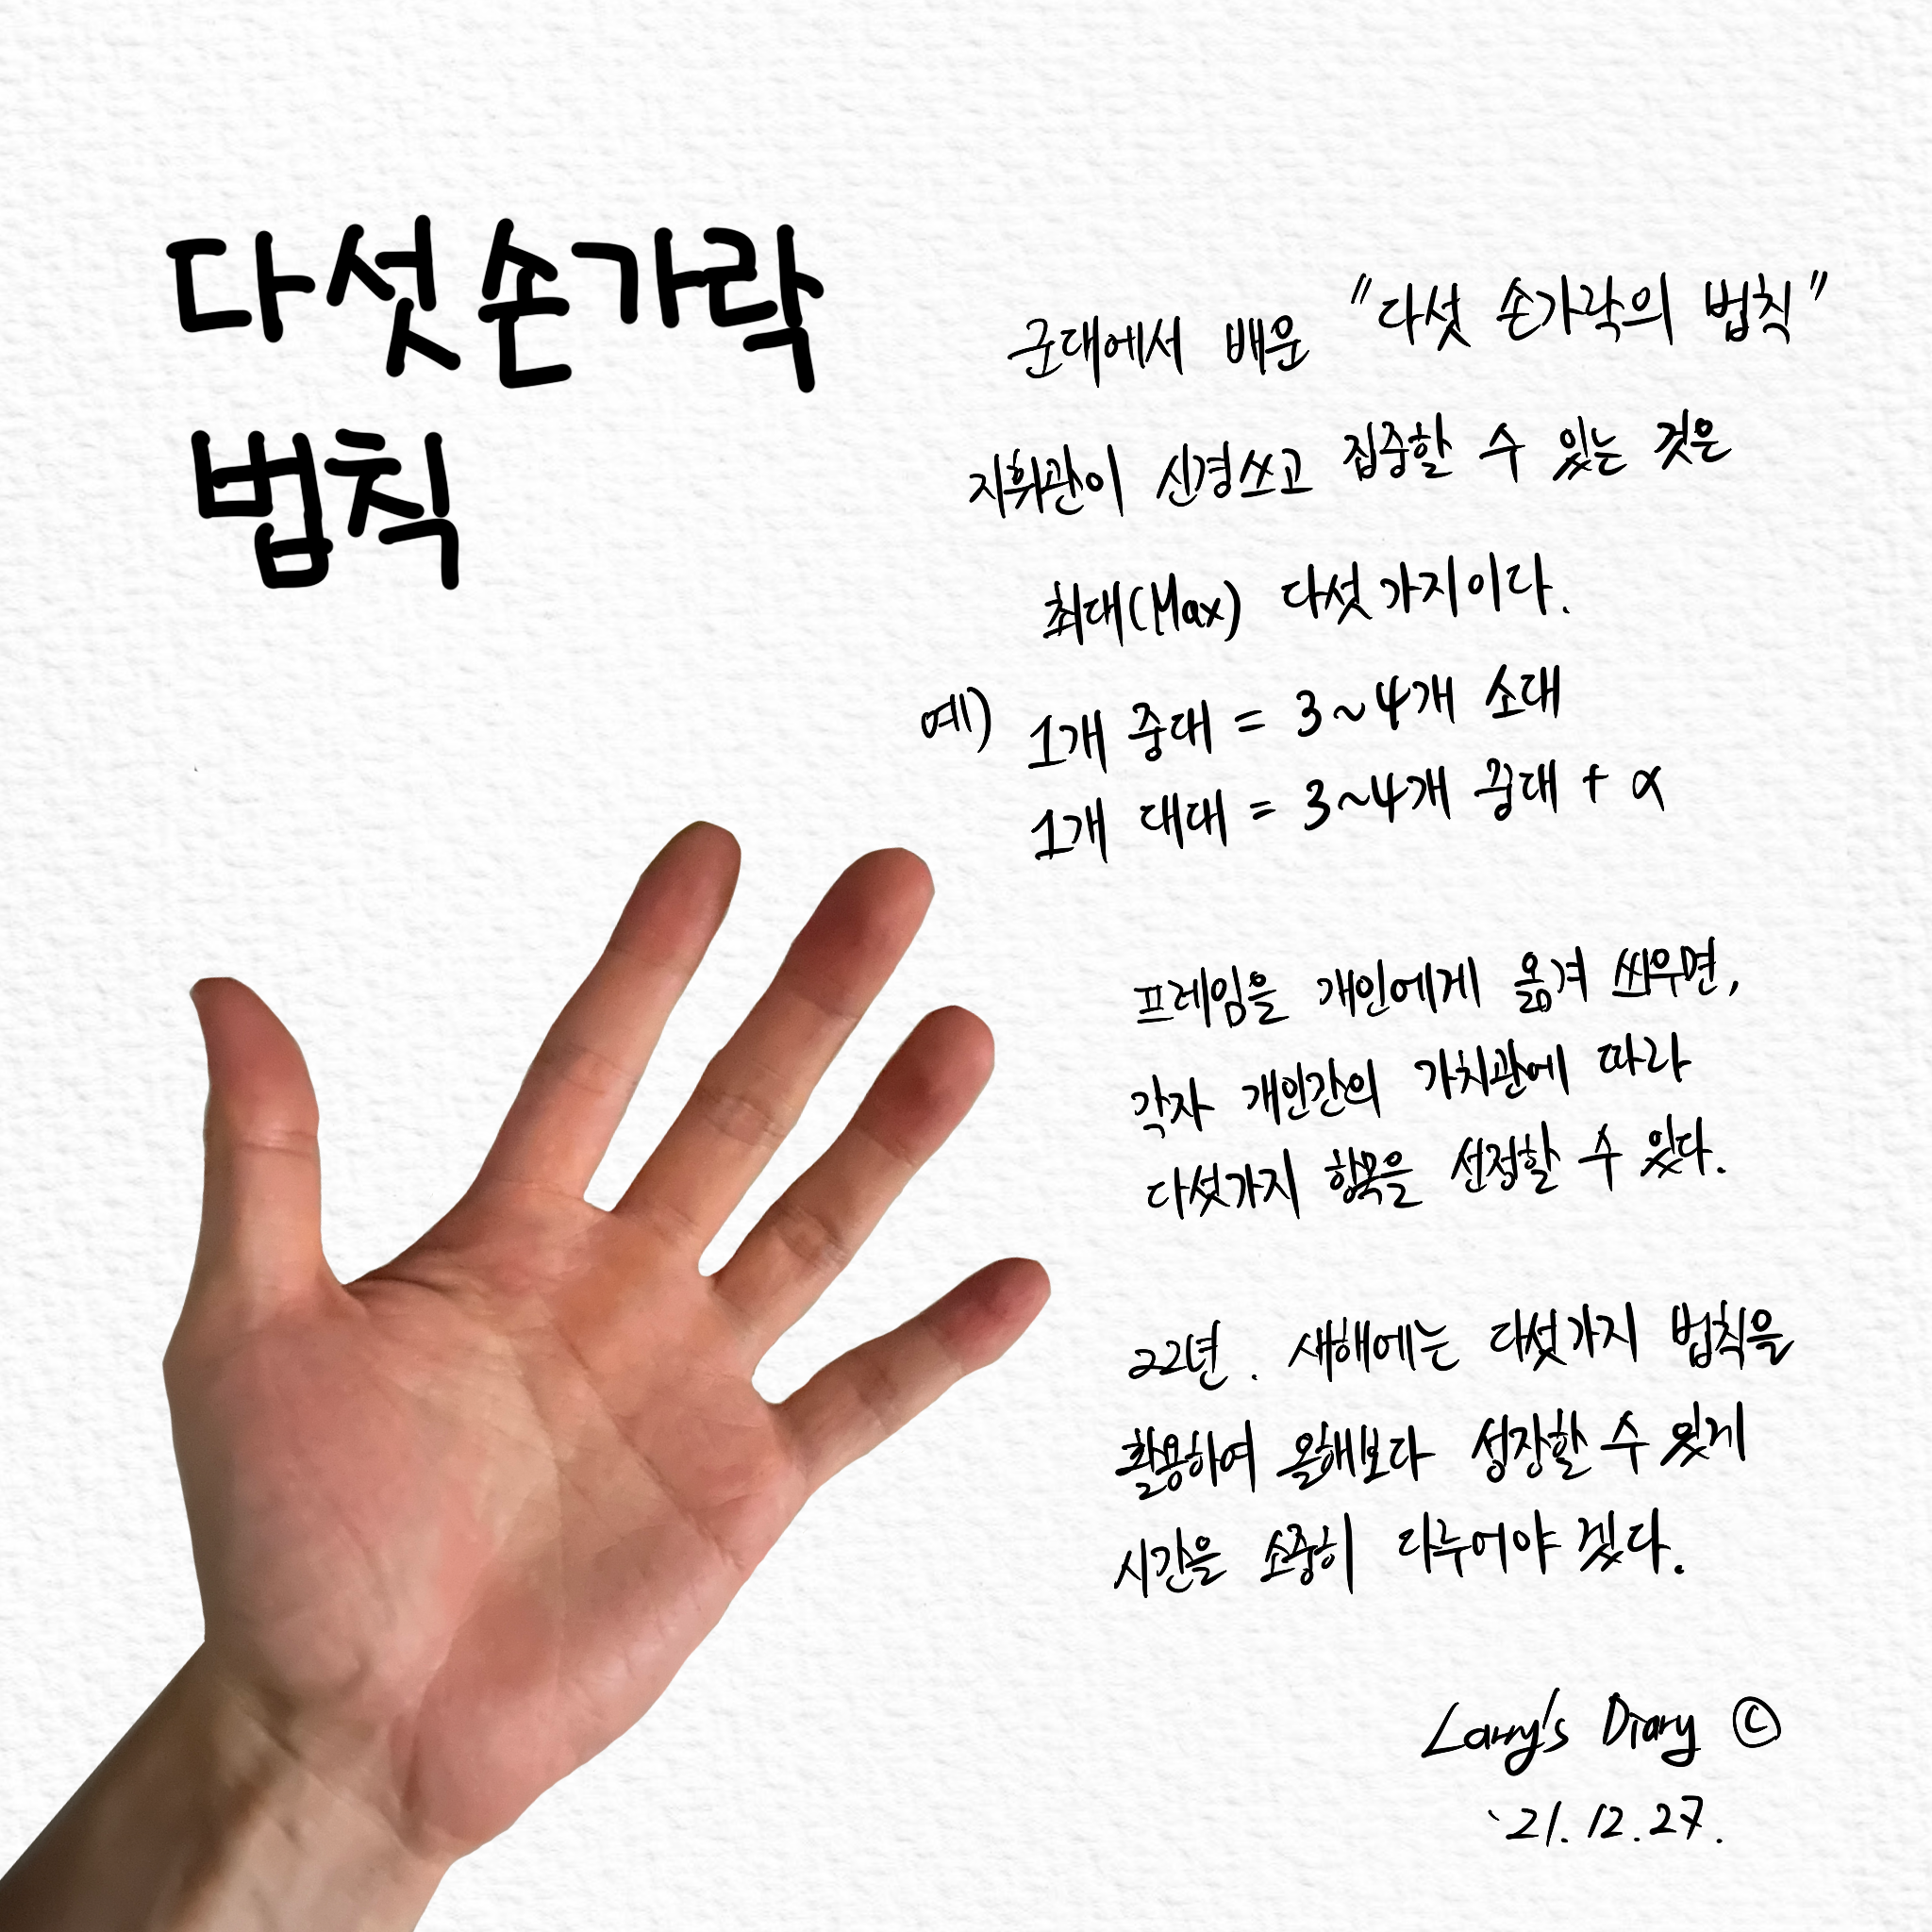 다섯손가락
법칙
군대에서 배운 "다섯 손가락의 법칙"
지휘관이 신경쓰고 집중할 수 있는 것은
최대(Max) 다섯가지이다.
예) 1개 중대 = 3~4개 소대
1개 대대 = 3~4개 중대 + α
프레임을 개인에게 옮겨 씌우면,
각자 개인간의 가치관에 따라
다섯가지 항목을 선정할 수 있다.
22년. 새해에는 다섯가지 법칙을
활용하여 올해보다 성장할 수 있게
시간을 소중히 다루어야 겠다.
Larry's Diary ©
'21.12.27.